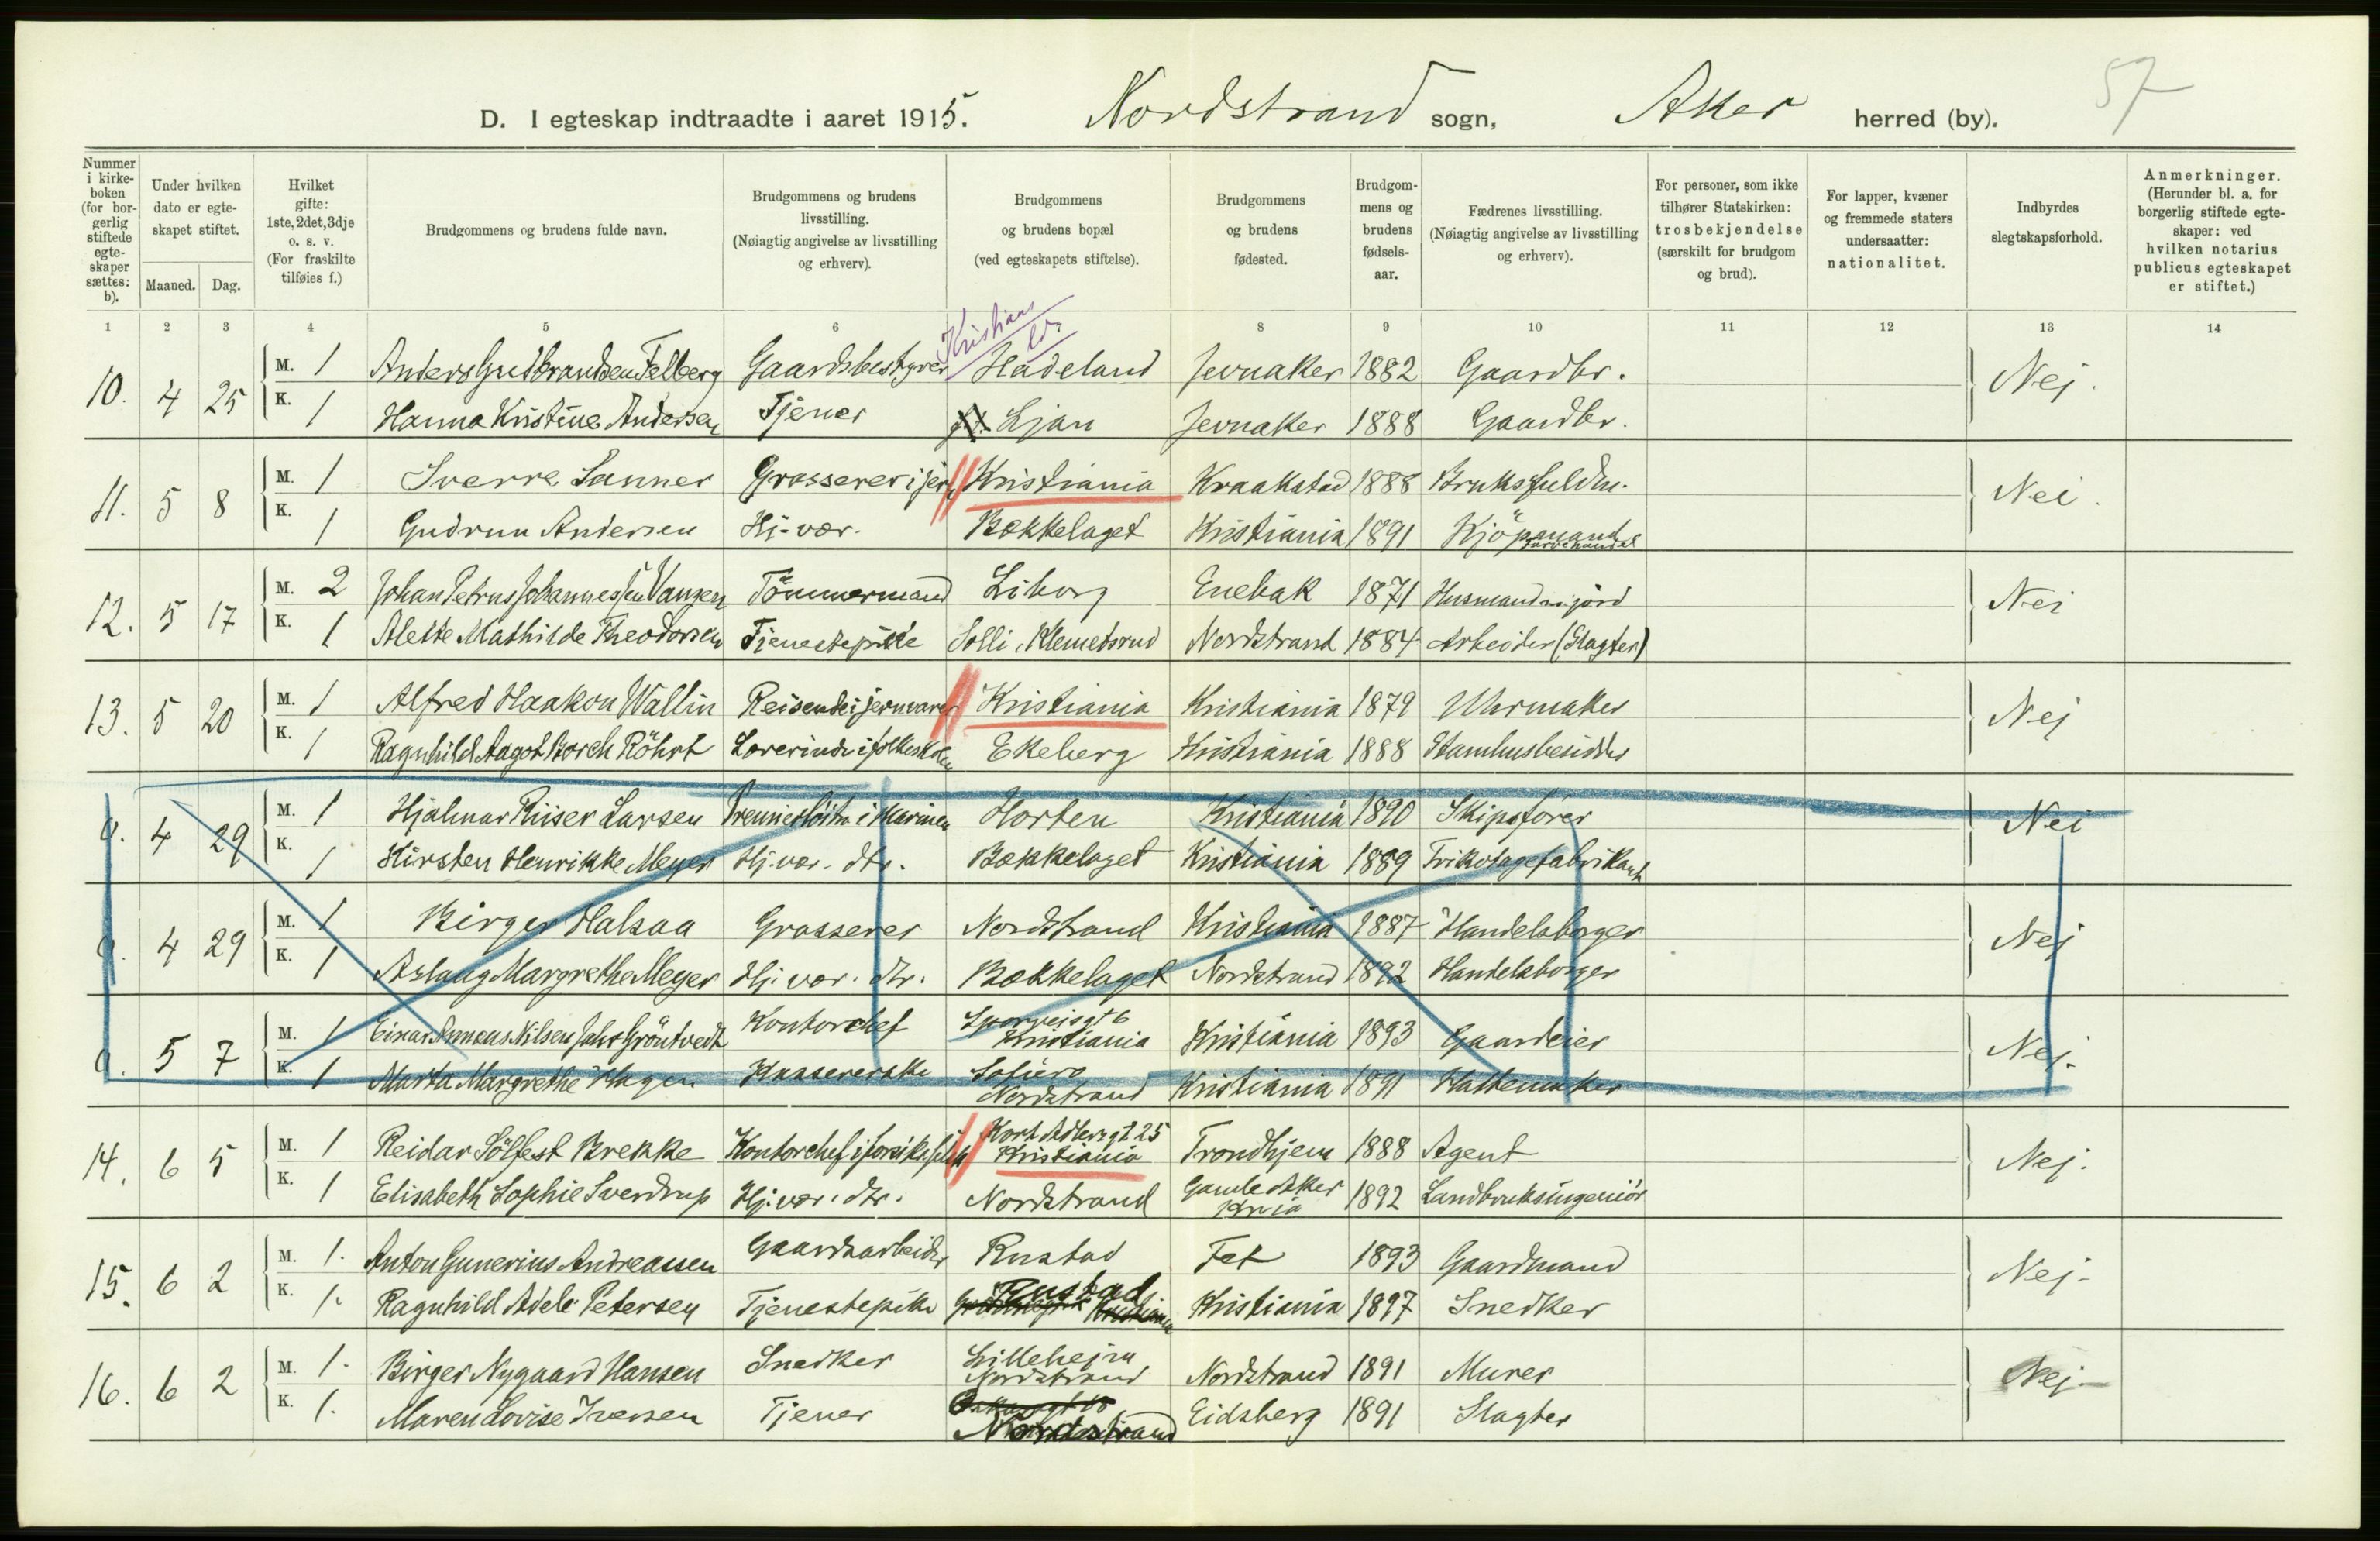 57
D. I egteskap indtraadte i aaret 1915. Nordstrand sogn, Aker herred (by).
Nummer i kirke-boken (for bor-gerlig stiftede egte-skaper sættes: b).
Under hvilken dato er egte-skapet stiftet.
Maaned. Dag.
Hvilket gifte: 1ste, 2det, 3dje o. s. v. (For fraskilte tilføies f.)
Brudgommens og brudens fulde navn.
Brudgommens og brudens livsstilling. (Nøiagtig angivelse av livsstilling og erhverv).
Brudgommens og brudens bopæl (ved egteskapets stiftelse).
Brudgommens og brudens fødested.
Brudgom-mens og brudens fødsels-aar.
Fædrenes livsstilling. (Nøiagtig angivelse av livsstilling og erhverv).
For personer, som ikke tilhører Statskirken: trosbekjendelse (særskilt for brudgom og brud).
For lapper, kvæner og fremmede staters undersaatter: nationalitet.
Indbyrdes slegtskapsforhold.
Anmerkninger. (Herunder bl. a. for borgerlig stiftede egte-skaper: ved hvilken notarius publicus egteskapet er stiftet.)
1 2 3 4 5 6 8 9 10 11 12 13 14
Kristians
10. 4 25 M. 1 Anders Gudbrandsen Felberg Gaardsbestyrer Hadeland Jevnaker 1882 Gaardbr. Nej.
K. 1 Hanna Kristine Andersen Tjener Ljan Jevnaker 1888 Gaardbr.
11. 5 8 M. 1 Sverre Sanner Grosserer i jern Kristiania Kraakstad 1888 Bruksfuldm. Nei.
K. 1 Gudrun Andersen Hj-vær. Bækkelaget Kristiania 1891 Kjöpmand farvehandel
12. 5 17 M. 2 Johan Petrus Johannessen Vangen Tömmermand Liborg Enebak 1871 Husmand m. jord Nei
K. 1 Alette Mathilde Theodorsen Tjenestepike Solli, Klemetsrud Nordstrand 1884 Arbeider (Slagter)
13. 5 20 M. 1 Alfred Haakon Wallin Reisende i jernvarer Kristiania Kristiania 1879 Uhrmaker Nej
K. 1 Ragnhild Aagot Borch Röhrt Lærerinde i folkeskolen Ekeberg Kristiania 1888 Stamhusbesidder
0. 4 29 M. 1 Hjalmar Riiser Larsen Premierlöitn. i Marinen Horten Kristiania 1890 Skipsfører Nei
K. 1 Kirsten Henrikke Meyer Hj. vær. dtr. Bækkelaget Kristiania 1889 Trikotagefabrikant
0. 4 29 M. 1 Birger Halsaa Grosserer Nordstrand Kristiania 1887 Handelsborger Nej
K. 1 Aslaug Margrethe Meyer Hj. vær. dtr. Bækkelaget Nordstrand 1892 Handelsborger
0. 5 7 M. 1 Einar Nilsen Gröntvedt Kontorchef Sporveisgt 6 Kristiania Kristiania 1893 Gaardeier Nej.
K. 1 Marta Margrethe Hagen Kassererske Soliero Nordstrand Kristiania 1891 Hattemaker
14. 6 5 M. 1 Reidar Sölfest Brekke Kontorchef i forsikr. selsk Kort Adlersgt 25 Kristiania Trondhjem 1888 Agent Nej.
K. 1 Elisabeth Sophie Sverdrup Hj. vær. dtr. Nordstrand Gamle Aker Kr.ia 1892 Landbruksingeniör
15. 6 2 M. 1. Anton Gunerius Andreassen Gaardsarbeider Rustad Fet 1893 Gaardmand Nej-
K. 1. Ragnhild Adele Petersen Tjenestepike Rustad Kristiania 1897 Snedker
16. 6 2 M. 1. Birger Nygaard Hansen Snedker Lillehejm Nordstrand Nordstrand 1891 Murer Nej-
K. 1. Maren Lovise Iversen Tjener Nordstrand Eidsberg 1891 Slagter